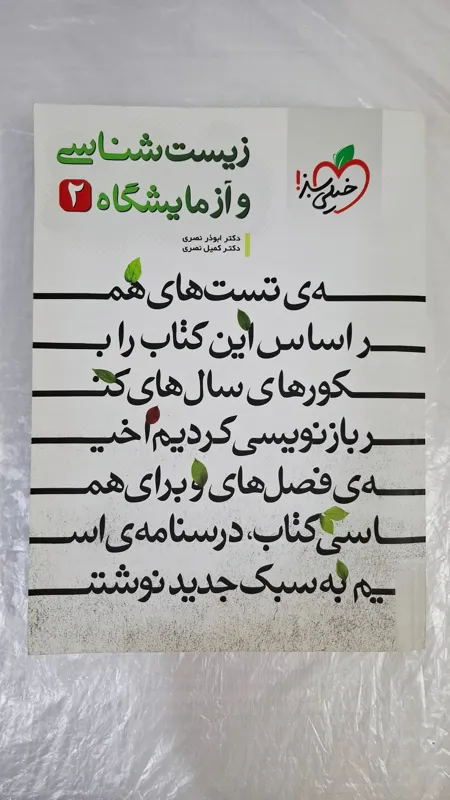 زیست‌شناسی
و آزمایشگاه ۲
خیلی سبز!
دکتر ابوذر نصری
دکتر کمیل نصری
ـه‌ی تست‌های همـ
ـر اساس این کتاب را بـ
ـکورهای سال‌های کنـ
ـر بازنویسی کردیم اخیـ
ـه‌ی فصل‌های و برای همـ
ـاسی کتاب، درسنامه‌ی اسـ
ـیم به سبک جدید نوشتـ